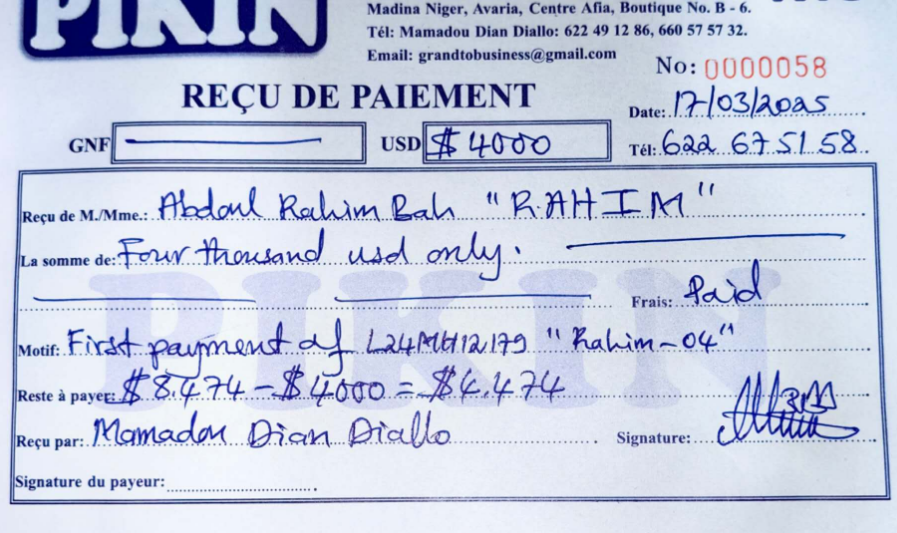 PIKIN
Madina Niger, Avaria, Centre Afia, Boutique No. B - 6.
Tél: Mamadou Dian Diallo: 622 49 12 86, 660 57 57 32.
Email: grandtobusiness@gmail.com
No: 0000058
REÇU DE PAIEMENT
Date: 17/03/2025
GNF USD $ 4000 Tél: 622 67 51 58.
Reçu de M./Mme.: Abdoul Rahim Bah "RAHIM"
La somme de: Four thousand usd only.
Frais: Paid
PIKIN
Motif: First payment of L24MH12179 "Rahim-04"
Reste à payer: $8.474 - $4000 = $4.474
Reçu par: Mamadou Dian Diallo Signature:
Signature du payeur: